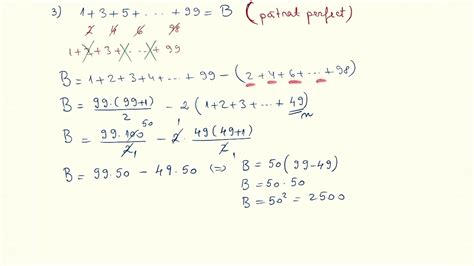 3) 1+3+5+...+99 = B (pătrat perfect)
2 4 6 98
1+2+3+...+99
B = 1+2+3+4+...+99 - (2+4+6+...+98)
B = 99·(99+1)/2 - 2(1+2+3+...+49) n
B = 99·100 50/2 1 - 2 1·49(49+1)/2 1
B = 99·50 - 49·50 (=) B = 50(99-49)
B = 50·50
B = 50² = 2500